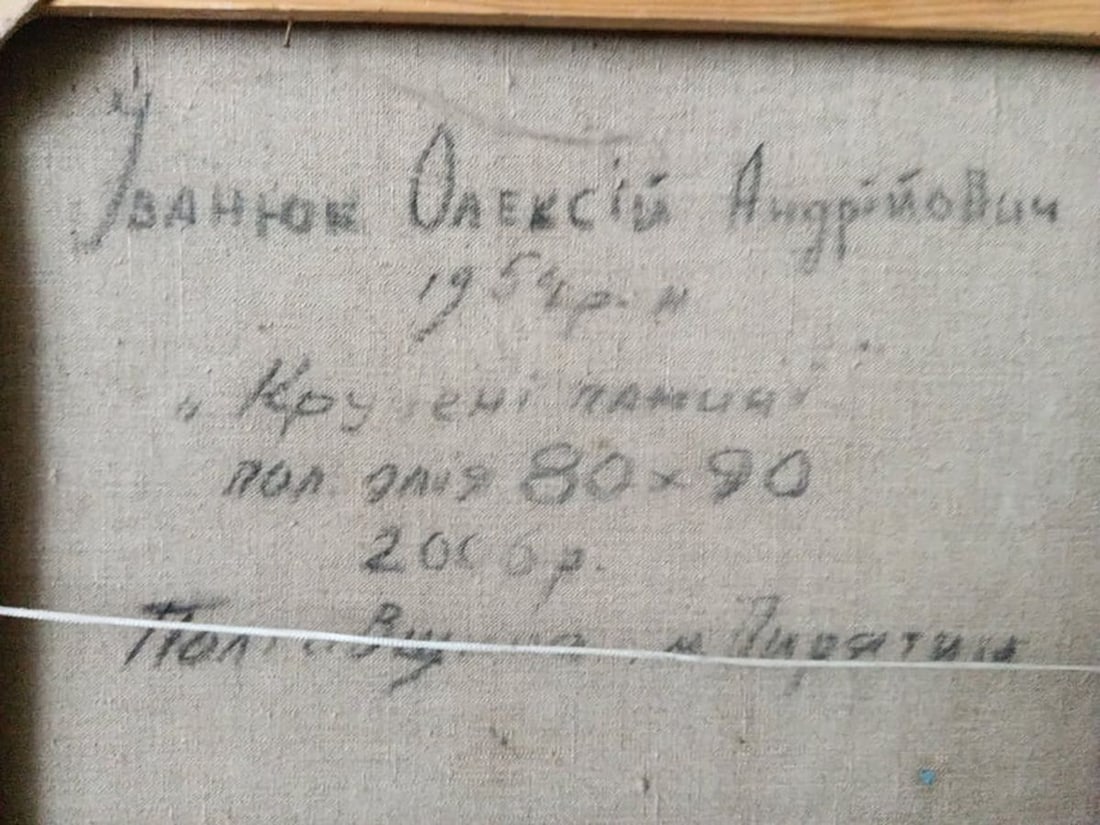 Іванюк Олексій Андрійович
1954 р. н
„Кручені паничі"
пол. олія 80×90
2006 р.
Полтавщина, м Пирятин